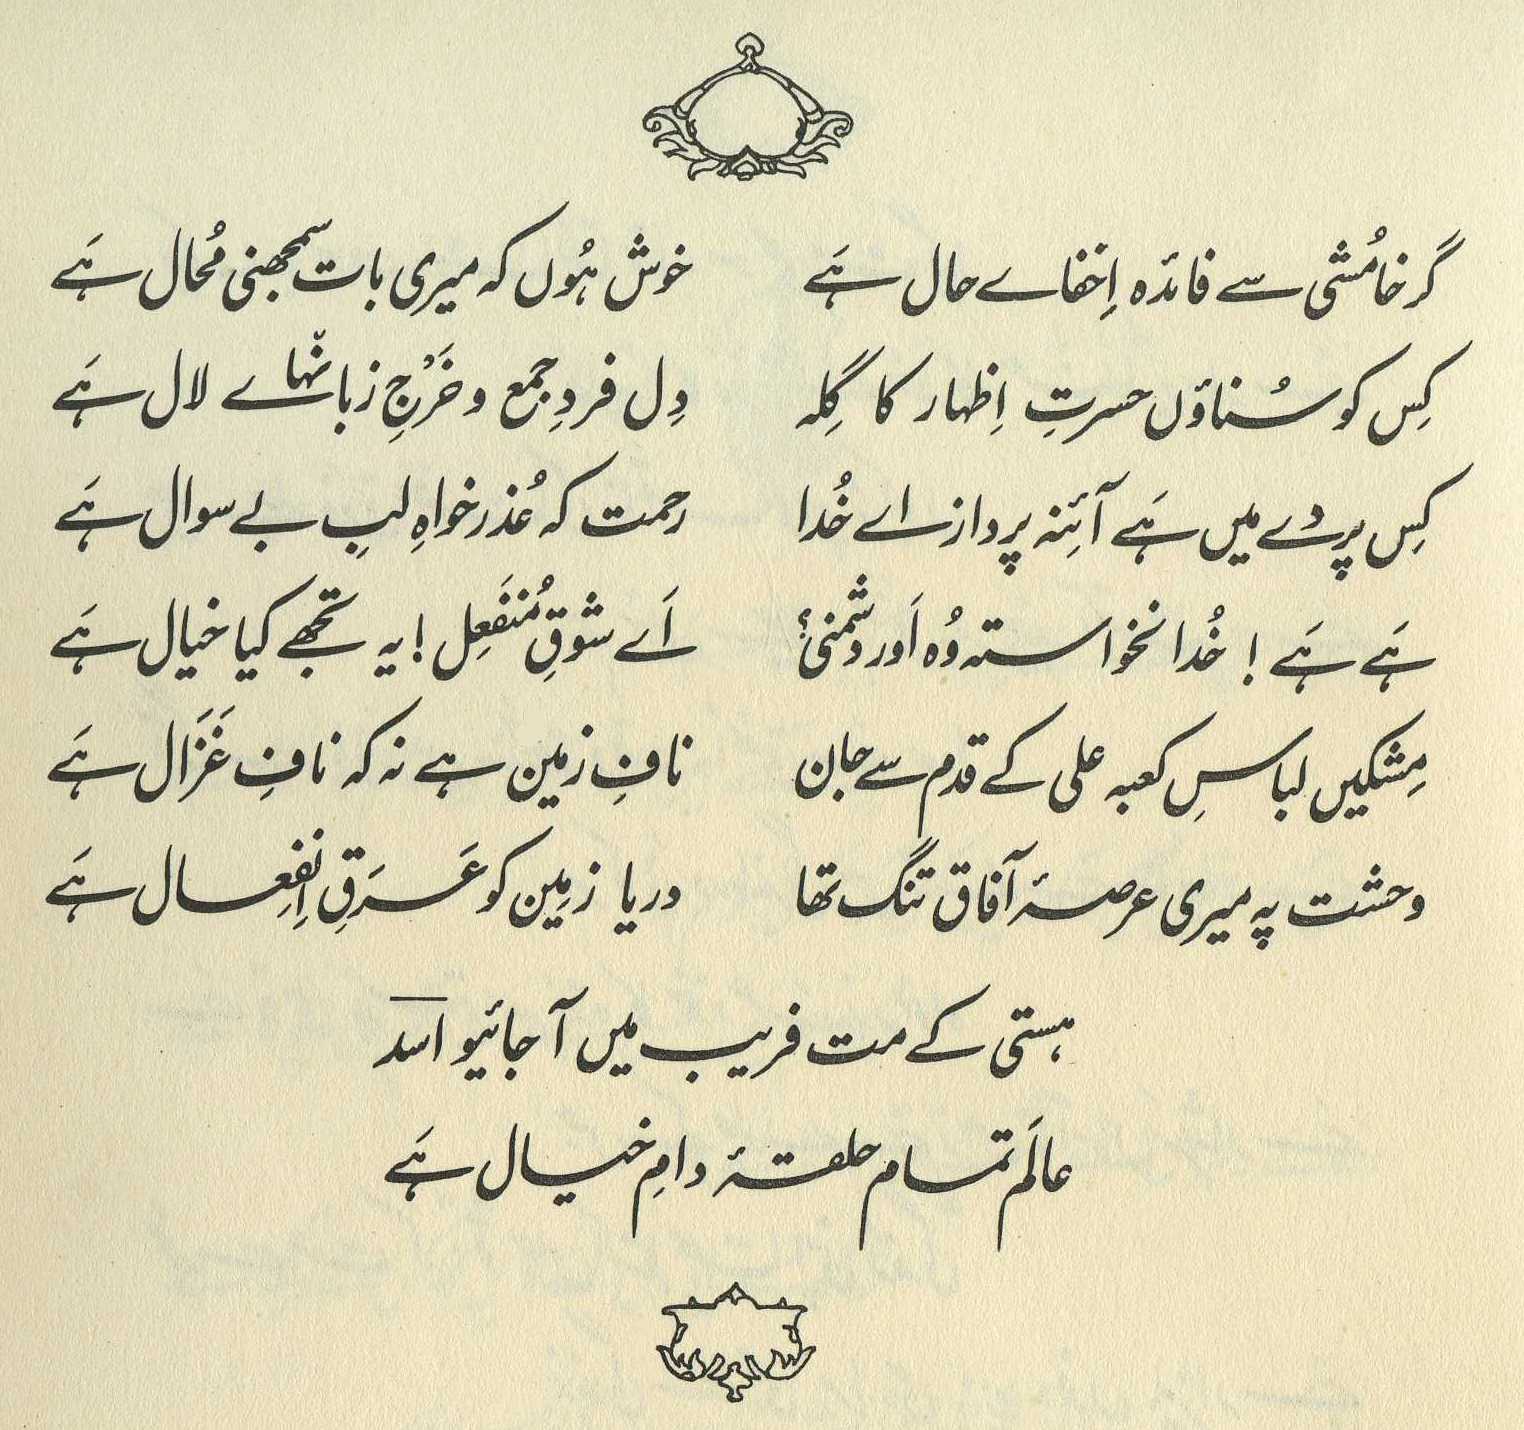 گر خامُشی سے فائدہ اِخفاے حال ہَے خوش ہُوں کہ میری بات سمجھنی مُحال ہَے
کِس کو سُناؤں حسرتِ اِظہار کا گِلہ دِل فردِ جمع و خَرْجِ زبانہاے لال ہَے
کِس پردے میں ہَے آئِنہ پرداز اے خُدا رحمت کہ عُذر خواہِ لبِ بے سوال ہَے
ہَے ہَے ! خُدا نخواستہ وُہ اَور دشمنی؟ اَے شوقِ مُنفَعِل ! یہ تجھے کیا خیال ہَے
مِشکیں لباسِ کعبہ علی کے قدم سے جان نافِ زمین ہے نہ کہ نافِ غَزَال ہَے
وحشت پہ میری عرصۂ آفاق تنگ تھا دریا زمِین کو عَرَقِ اِنفِعال ہَے
ہستی کے مت فریب میں آ جائیو اسد
عالَم تمام حلقۂ دامِ خیال ہَے